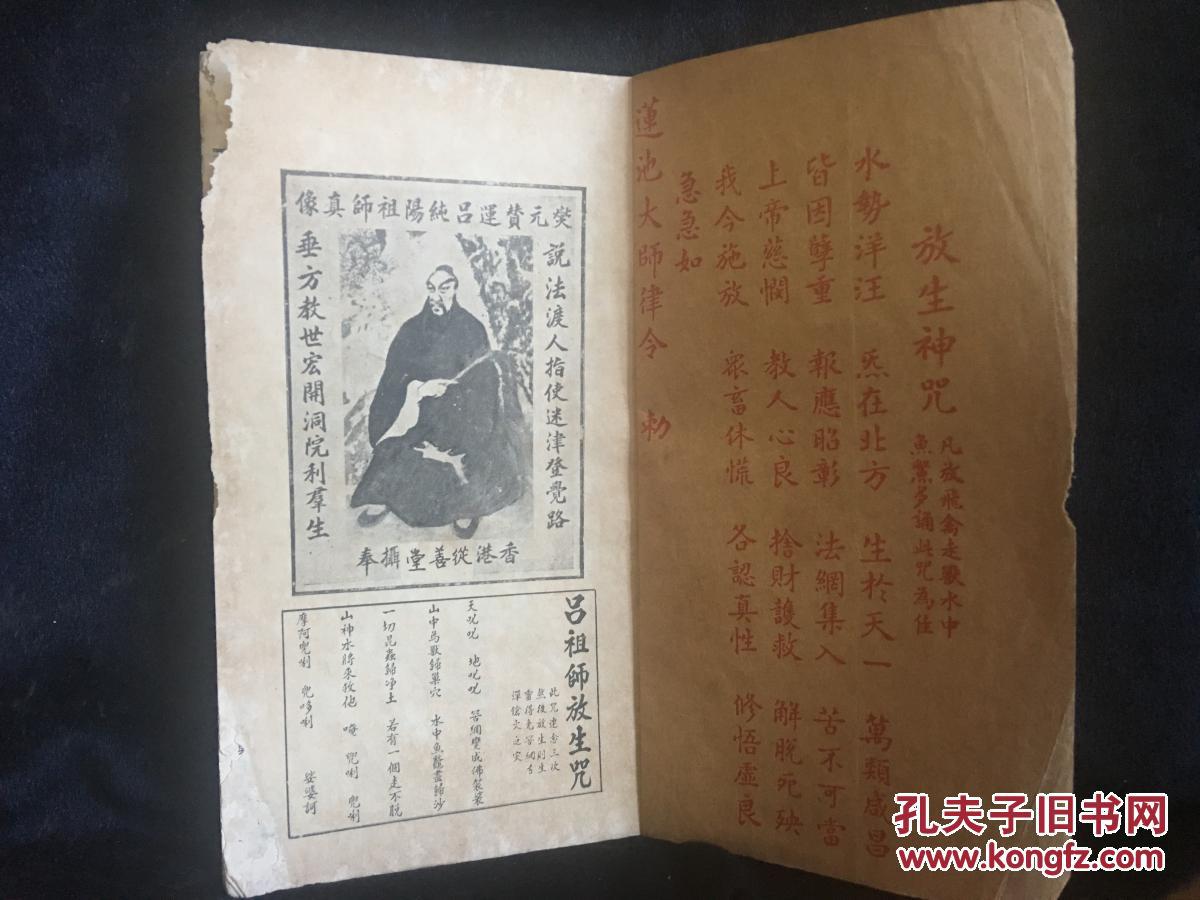 放生神咒
凡放飛禽走獸水中
魚鱉多誦此咒為佳
水勢洋汪 炁在北方 生於天一 萬類咸昌
皆因孽重 報應昭彰 法網集入 苦不可當
上帝慈憫 教人心良 捨財護救 解脫死殃
我今施放 眾畜休慌 各認真性 修悟虛良
急急如
蓮池大師律令 勅
燮元贊運呂純陽祖師真像
說法渡人指使迷津登覺路
垂方教世宏開洞院利羣生
香港從善堂攝奉
呂祖師放生咒
此咒連念三次
然後放生則生
靈得免罟網弓
彈鎗火之灾
天吰吰 地吰吰 罟網變成佛袈裟
山中鳥獸歸巢穴 水中魚鱉盡歸沙
一切昆蟲歸凈土 若有一個走不脫
山神水將來救他 唵 兜唎 兜唎
摩阿兜唎 兜哆唎 娑婆訶
孔夫子旧书网
www.kongfz.com